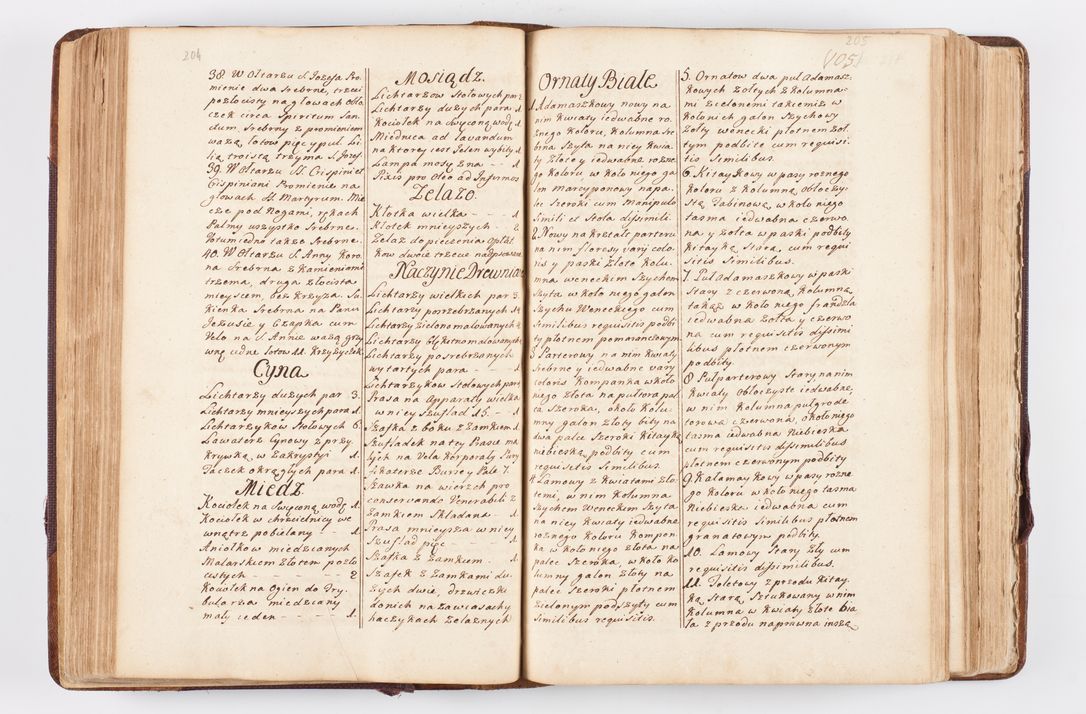 204
38 W Ołtarzu S. Jozefa Pro-
mienie dwa Srebrne, trzeci
pozłocisty na głowach Obło
czek circa Spiritum San-
ctum Srebrny z promieniem
ważą łotow pięć y puł. Li-
lią troistą trzyma S. Jozef.
39. W Ołtarzu SS. Crispini et
Crispiniani Promienie na
głowach SS. Martyrum. Mie
cze pod Nogami, rękach
Palmy wszystko Srebrne.
Potumiedno także Srebrne.
40. W Ołtarzu S. Anny Koro
na Srebrna z Kamieniami
trzema, druga złocista
mieyscem, bez krzyża. Su
kienka Srebrna na Panu
Jezusie y Czapka cum
Velo na S. Annie ważą grzy
wnę iedne łotow 11. Krzyżyczek
Cyna
Lichtarzy dużych par 3.
Lichtarzy mnieyszych para 1
Lichtarzykow Stołowych 6.
Lawaterz Cynowy z przy
krywką w Zakrystyi 1.
Taczek okrągłych para 1.
Miedz
Kociołek na Swęconą wodę 1.
Kociołek w chrzcielnicy we
wnątrz pobielany - 1
Aniołkow miedzianych
Malarskiem Złotem pozło
cistych - - - - - 2
Kociołek na Ogien do Try
bularza miedziany
mały ieden - - - - 1.
Mosiądz
Lichtarzow Stołowych par 2
Lichtarzy dużych para 1
Kociołek na Swęconą wodę 1
Miednica ad lavandum
na ktorey iest Jelen wybity 1
Lampa mosężna - - 1
Pixis pro Oleo ad Infirmos
Zelazo
Kłotka wielka - - - 1
Kłotek mnieyszych - - 2
Zelaz do pieczenia Opłat
kow dwoie trzecie nadpsowane
Naczynie Drewniane
Lichtarzy wielkich par 3.
Lichtarzy posrzebrzanych 14
Lichtarzy zielono malowanych 4
Lichtarzy błękitno malowanych
Lichtarzy posrebrzanych
wytartych para - - 1
Lichtarzykow Stołowych par 1
Prasa na Apparaty wielka
w niey Szuflad 15. - - 1
Szafka z boku z Zamkiem 1.
Szufladek na tey Prasie ma
łych na Vela Korporały Pury
fikaterze Burse y Pale 7.
Szawka na wierzch pro
conservando Venerabili z
Zamkiem Składana - - 1
Prasa mnieysza w niey
Szuflad pięć - - - - 1.
Szafka z Zamkiem - 1.
Szafek z Zamkami du
żych dwie, drzwiczki
do nich na zawiasach y
haczykach Zelaznych
205
(105)
Ornaty Białe
1 Adamaszkowy nowy na
nim kwiaty iedwabne ro
żnego koloru, kolumna Sre
brna Szyta na niey kwia
ty Złote y iedwabne rożne
go koloru, w koło niego ga
lon marcyponowy na pa-
lec Szeroki cum Manipulo
Simili et Stola dissimili.
2 Nowy na kształt parteru
na nim floresy Vary colo
ris y paski Złote kolu-
mna weneckim Szychem
Szyta w koło niego galon
Szychu Weneckiego cum
Similibus requisitis podbi
ty płotnem pomaranczowym
3 Parterowy na nim kwiaty
Srebrne y iedwabne vary
coloris kompanka w koło
niego Złota na pułtora pal
ca Szeroka, około kolu-
mny galon Złoty bity na
dwa palce Szeroki kitayką
niebieską podbity cum
requisitis Similibus.
4 Lamowy z kwiatami Zło
temi, w nim kolumna
Szychem Weneckim Szyta
na niey kwiaty iedwabne
rożnego koloru kompon
ka w koło niego Złota na
palec Szeroka, w koło ko
lumny galon Złoty na
palec Szeroki płotnem
zielonym podszyty cum
Similibus requisitis.
5. Ornatow dwa pul Adamasz-
kowych Zołtych z kolumna-
mi zielonemi takiemiż w
kołonich galon Szychowy
Zołty wenecki płotnem Zoł
tym podbite cum requisi-
tis Similibus.
6. Kitaykowy w pasy rożnego
koloru z kolumną Obłoczy-
stą Tabinową, w koło niego
tasma iedwabna czerwo
na y Zołta w paski podbity
kitayką Starą. cum requi
sitis Similibus.
7. Pul Adamaszkowy w paski
Stary z czerwoną kolumną
takąż w koło niego frandzla
iedwabna Zołta y czerwo
na cum requisitis dissimi
libus płotnem czerwonym
podbity
8 Pulparterowy Stary na nim
kwiaty Obłoczyste iedwabne,
w nim kolumna pulgrode
torowa czerwona, około niego
tasma iedwabna Niebieska
cum requisitis dissimilibus
płotnem czerwonym podbity
9. Kałamaykowy w pasy rożne
go koloru w koło niego tasma
Niebieska iedwabna cum
requisitis Similibus płotnem
granatowym podbity.
10. Lamowy Stary Zły cum
requisitis dissimilibus.
11. Toletowy z przodu kitay
ką Starą Sztukowany w nim
kolumna w kwiaty Złote bia
ła z przodu naprawna inszą